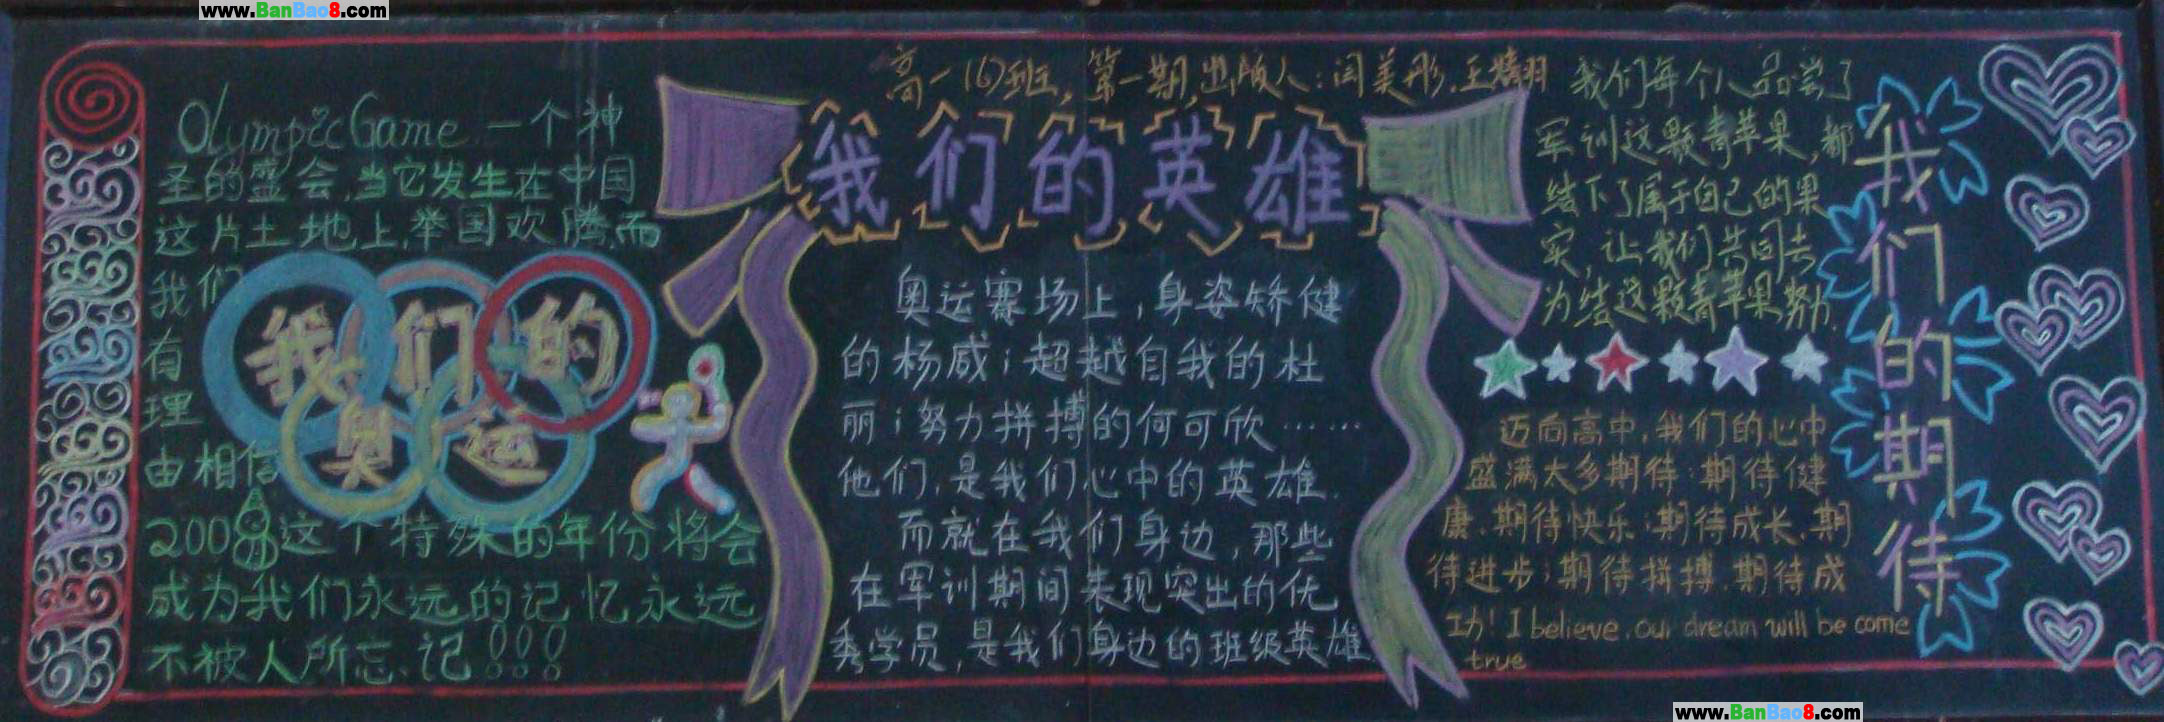 www.BanBao8.com
高一(6)班,第一期,出版人:闫美彤.王婧羽
Olympic Game 一个神
圣的盛会,当它发生在中国
这片土地上,举国欢腾,而
我们
有
理
由相信
2008这个特殊的年份将会
成为我们永远的记忆永远
不被人所忘记!!!
我们的
奥运
我们的英雄
奥运赛场上,身姿矫健
的杨威;超越自我的杜
丽;努力拼搏的何可欣……
他们,是我们心中的英雄.
而就在我们身边,那些
在军训期间表现突出的优
秀学员,是我们身边的班级英雄
我们每个人品尝了
军训这颗青苹果,都
结下了属于自己的果
实,让我们共同去
为结这颗青苹果努力.
迈向高中,我们的心中
盛满太多期待:期待健
康,期待快乐;期待成长,期
待进步;期待拼搏,期待成
功! I believe, our dream will be come
true
我们的期待
www.BanBao8.com